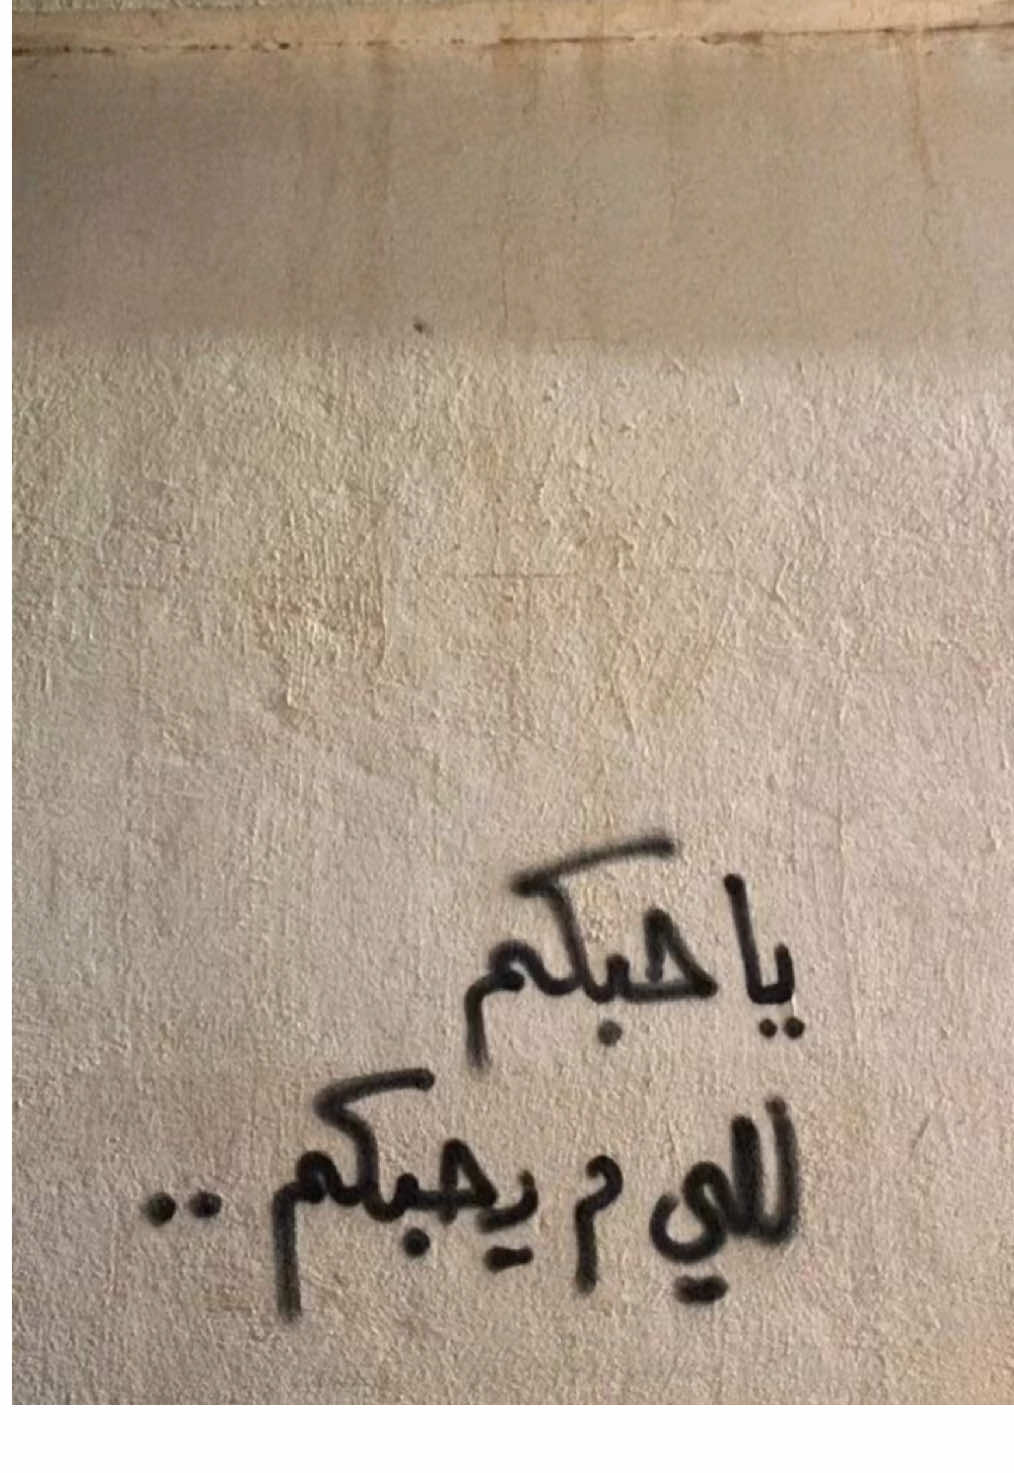 ياحبكم
للي م يحبكم ..